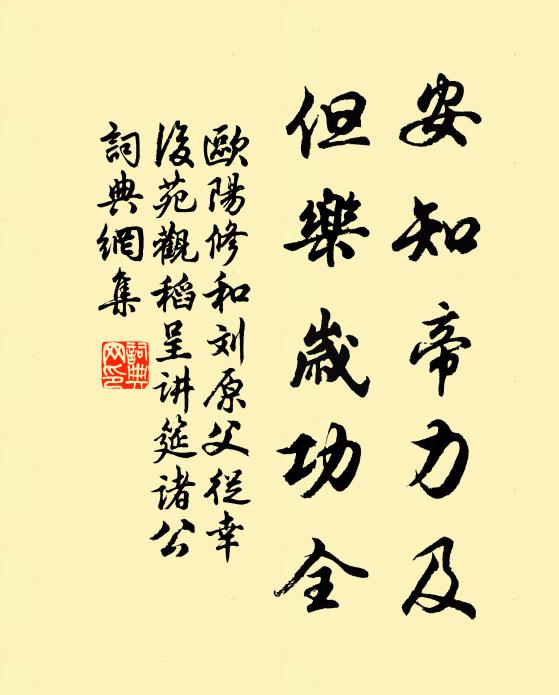 安知帝力及
但樂歲功全
歐陽修和刘原父從幸
後苑觀稻呈讲筵诸公
詞典網集
詞典
网印